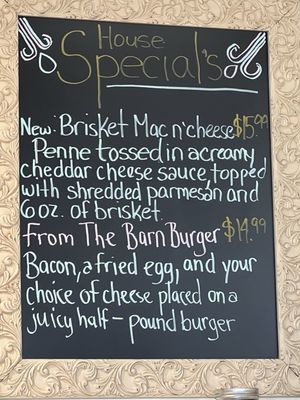 House
Special's
New: Brisket Mac n' cheese $15.99
Penne tossed in a creamy
cheddar cheese sauce, topped
with shredded parmesan and
6 oz. of brisket.
From The Barn Burger $14.99
Bacon, a fried egg, and your
choice of cheese placed on a
juicy half-pound burger